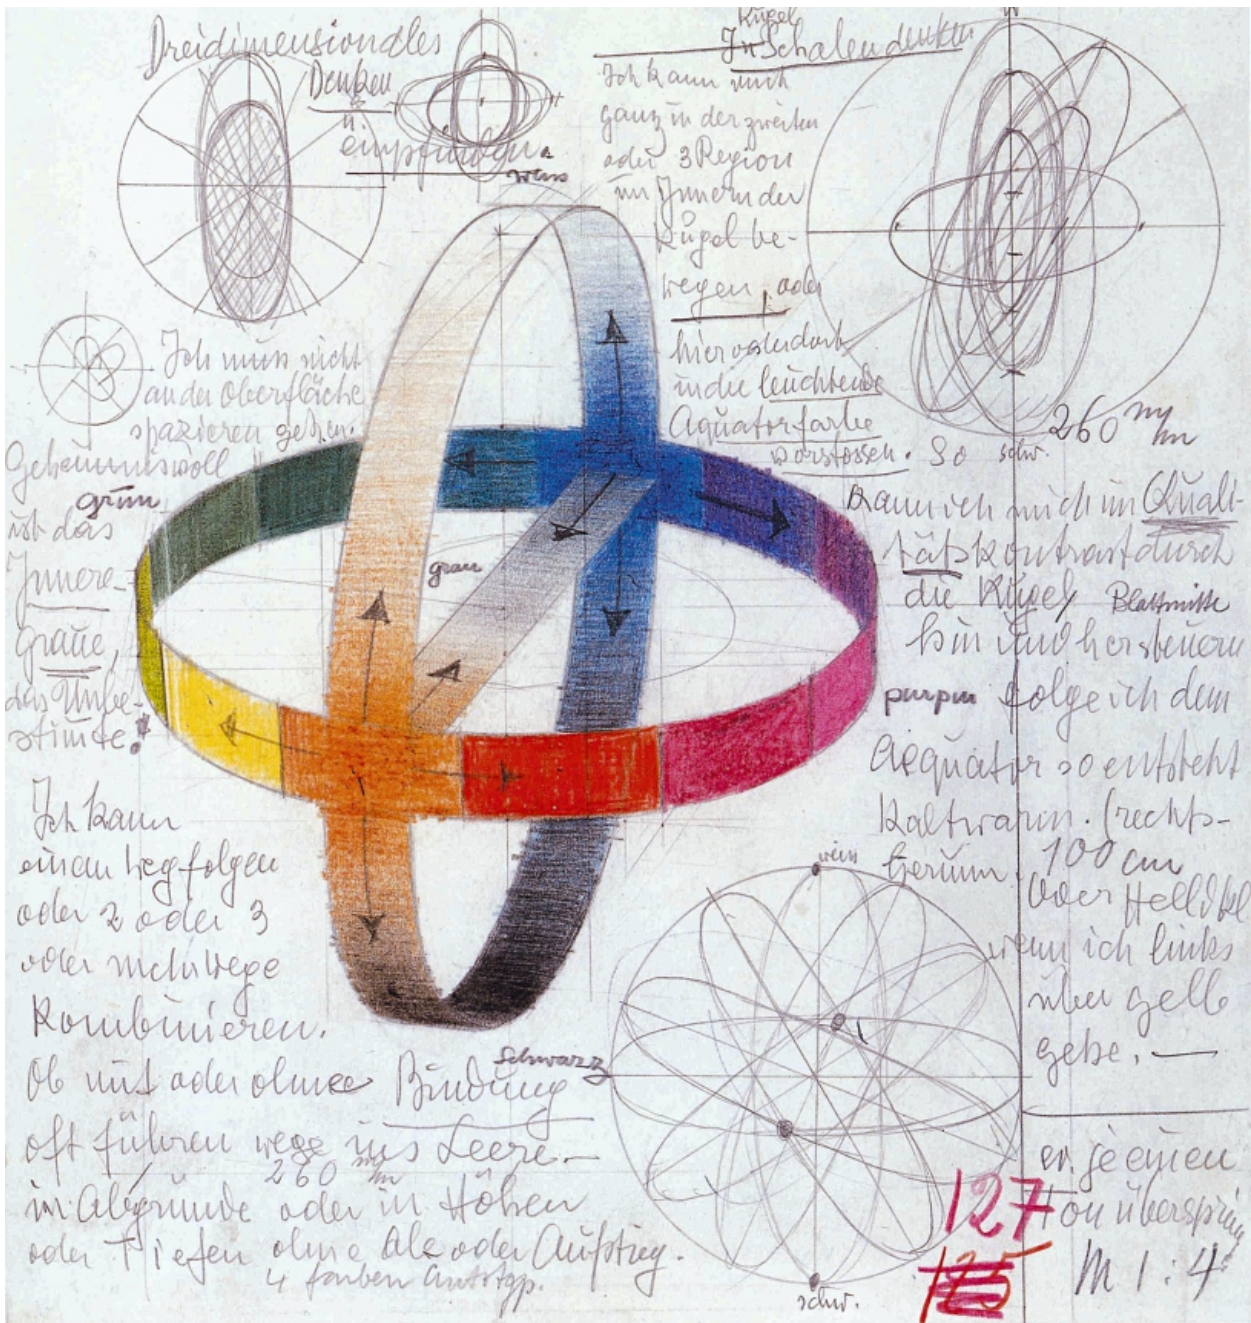 Dreidimensionales
Denken
u.
empfinden.
weiss
Kugel
In Schalen denken
Ich kann mich
ganz in der zweiten
oder 3 Region
im Innern der
Kugel be-
wegen, oder
hier oder dort
in die leuchtende
Aquatorfarbe
vorstossen. So
schw.
260 mm
kann ich mich im Quali-
tätskontrast durch
die Kugel
Blattmitte
hin und her steuern
purpur
folge ich dem
Aequator so entsteht
Kaltwarm. (rechts-
herum
100 cm
oder Helldkl
wenn ich links
über gelb
gehe. —
Ich muss nicht
an der Oberfläche
spazieren gehen.
Geheimnisvoll
grün
ist das
Innere-
Graue,
das Unbe-
stimte!
grau
Ich kann
einem weg folgen
oder 2 oder 3
oder mehr wege
Kombinieren.
Schwarz
Ob mit oder ohne Bindung
oft führen wege ins Leere.—
260 mm
in Abgründe oder in Höhen
oder Tiefen ohne Ab oder Aufstieg.
4 farben Autotyp.
weiss
schw.
je einen
Ton überspring
127
125
M 1:4